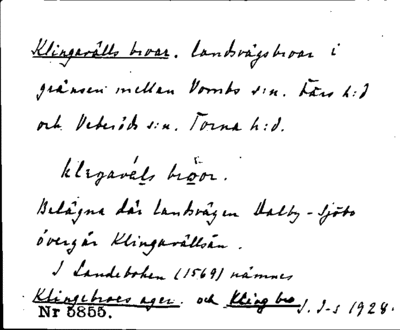 Klingavälls broar. Landsvägsbroar i
gränsen mellan Vombs s:n. Färs h:d
och Veberöds s:n. Torna h:d.
klegaváls broor.
Belägna där landsvägen Dalby - Sjöbo
övergår Klingavällsån.
I Landeboken (1569) nämnes
Klingebroes ager. och Kling bro
Nr 5855. J. I-s 1928.